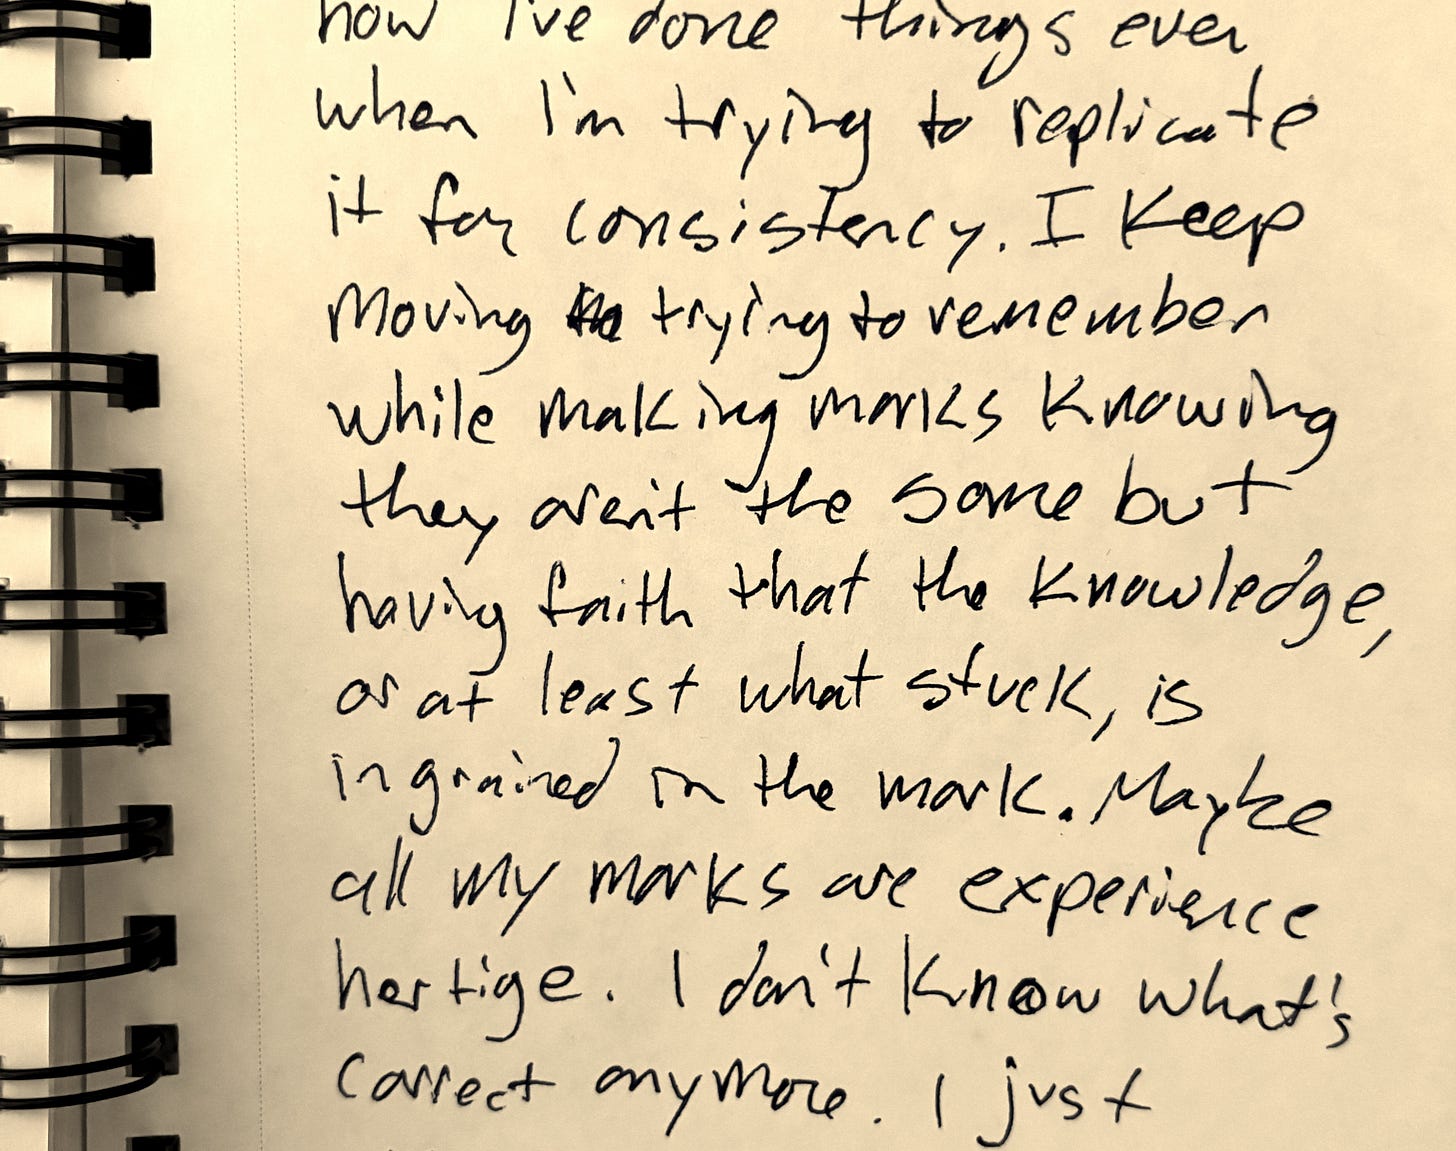 how I've done things even
when I'm trying to replicate
it for consistency. I keep
moving trying to remember
while making marks knowing
they aren't the same but
having faith that the knowledge,
or at least what stuck, is
ingrained in the mark. Maybe
all my marks are experience
hertige. I don't know what's
correct anymore. I just